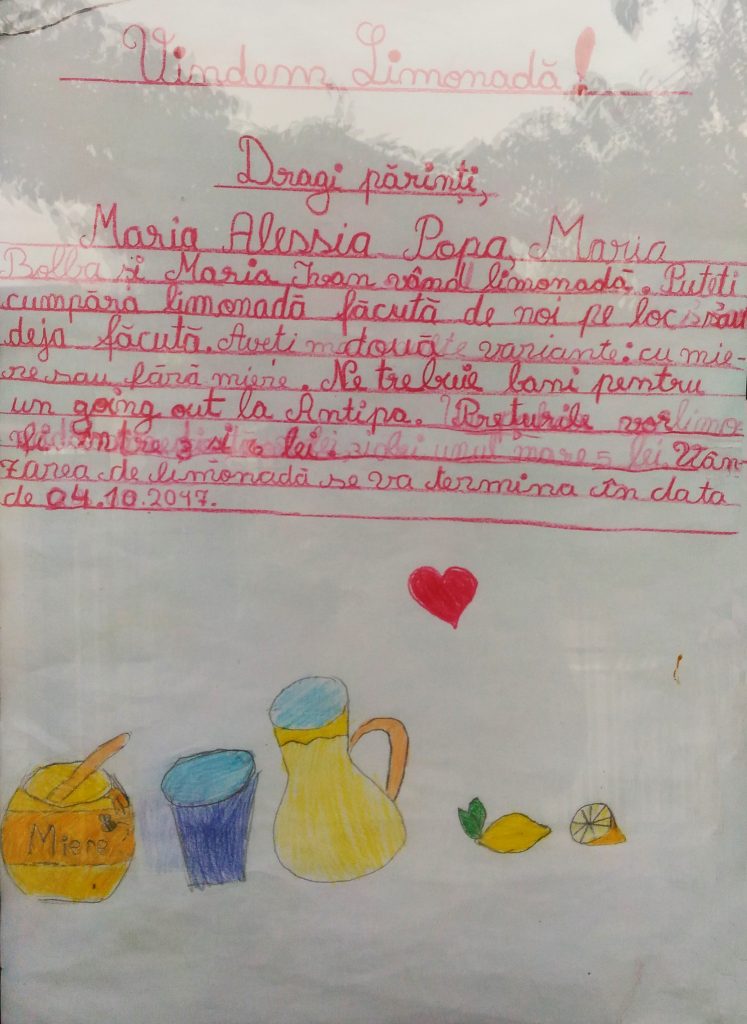 Vindem Limonadă!
Dragi părinți,
Maria Alessia Popa, Maria
Bolba și Maria Ivan vând limonadă. Puteti
cumpăra limonadă făcută de noi pe loc sau
deja făcută. Aveti două variante: cu mie-
re sau fără miere. Ne trebuie bani pentru
un going out la Antipa. Prețurile vor
fi între 3 si 6 lei. Vân-
zarea de limonadă se va termina în data
de 04.10.2017.
Miere